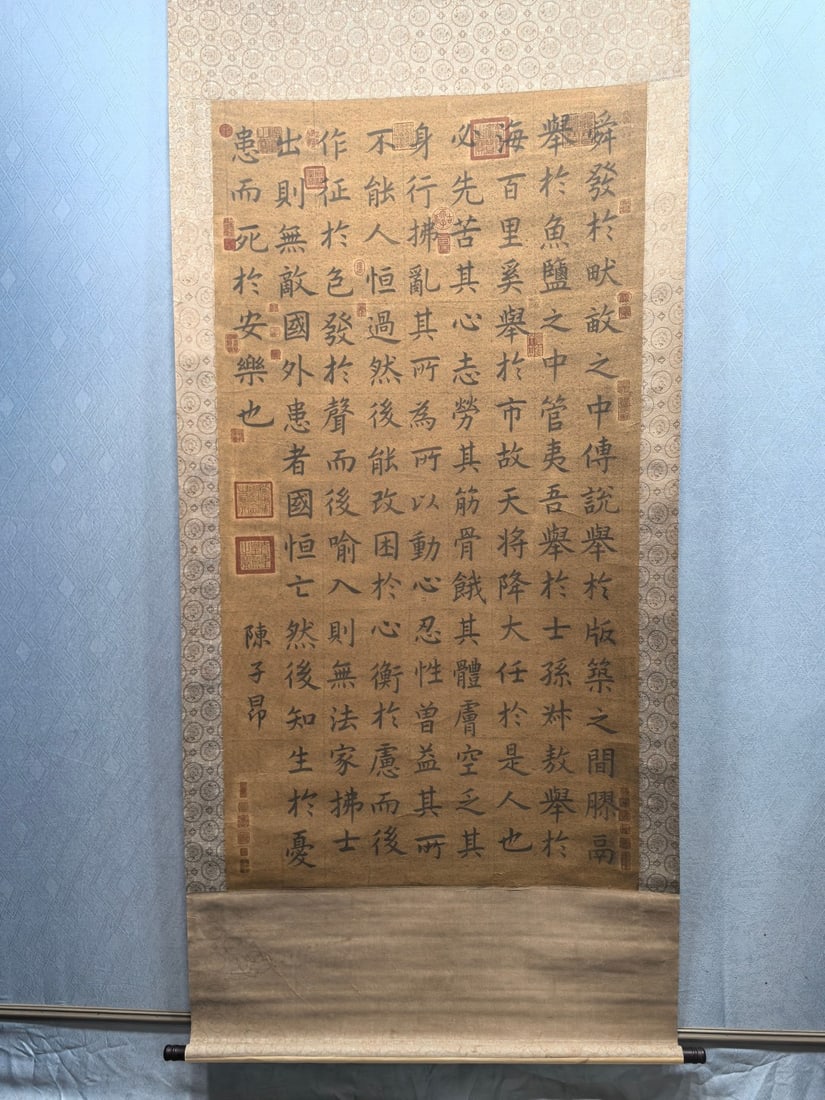 舜發於畎畝之中傅說舉於版築之間膠鬲
舉於魚鹽之中管夷吾舉於士孫叔敖舉於
海百里奚舉於市故天將降大任於是人也
必先苦其心志勞其筋骨餓其體膚空乏其
身行拂亂其所為所以動心忍性曾益其所
不能人恒過然後能改困於心衡於慮而後
作征於色發於聲而後喻入則無法家拂士
出則無敵國外患者國恒亡然後知生於憂
患而死於安樂也
陳子昂